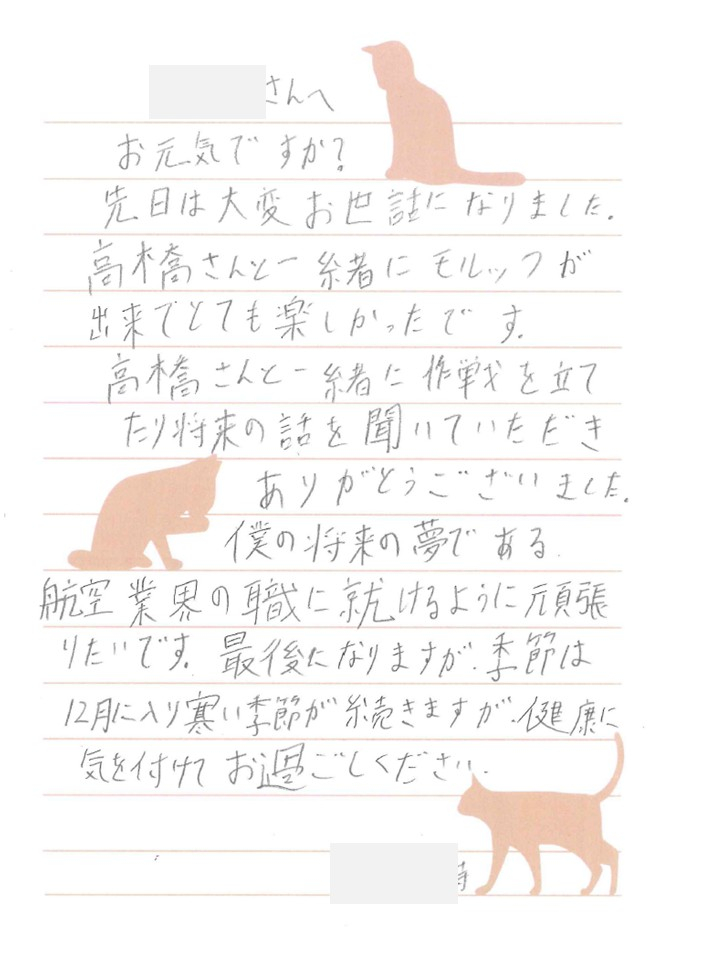 さんへ
お元気ですか?
先日は大変お世話になりました。
高橋さんと一緒にモルックが
出来てとても楽しかったです。
高橋さんと一緒に作戦を立て
たり将来の話を聞いていただき
ありがとうございました。
僕の将来の夢である
航空業界の職に就けるように頑張
りたいです。最後になりますが、季節は
12月に入り寒い季節が続きますが、健康に
気を付けてお過ごしください。